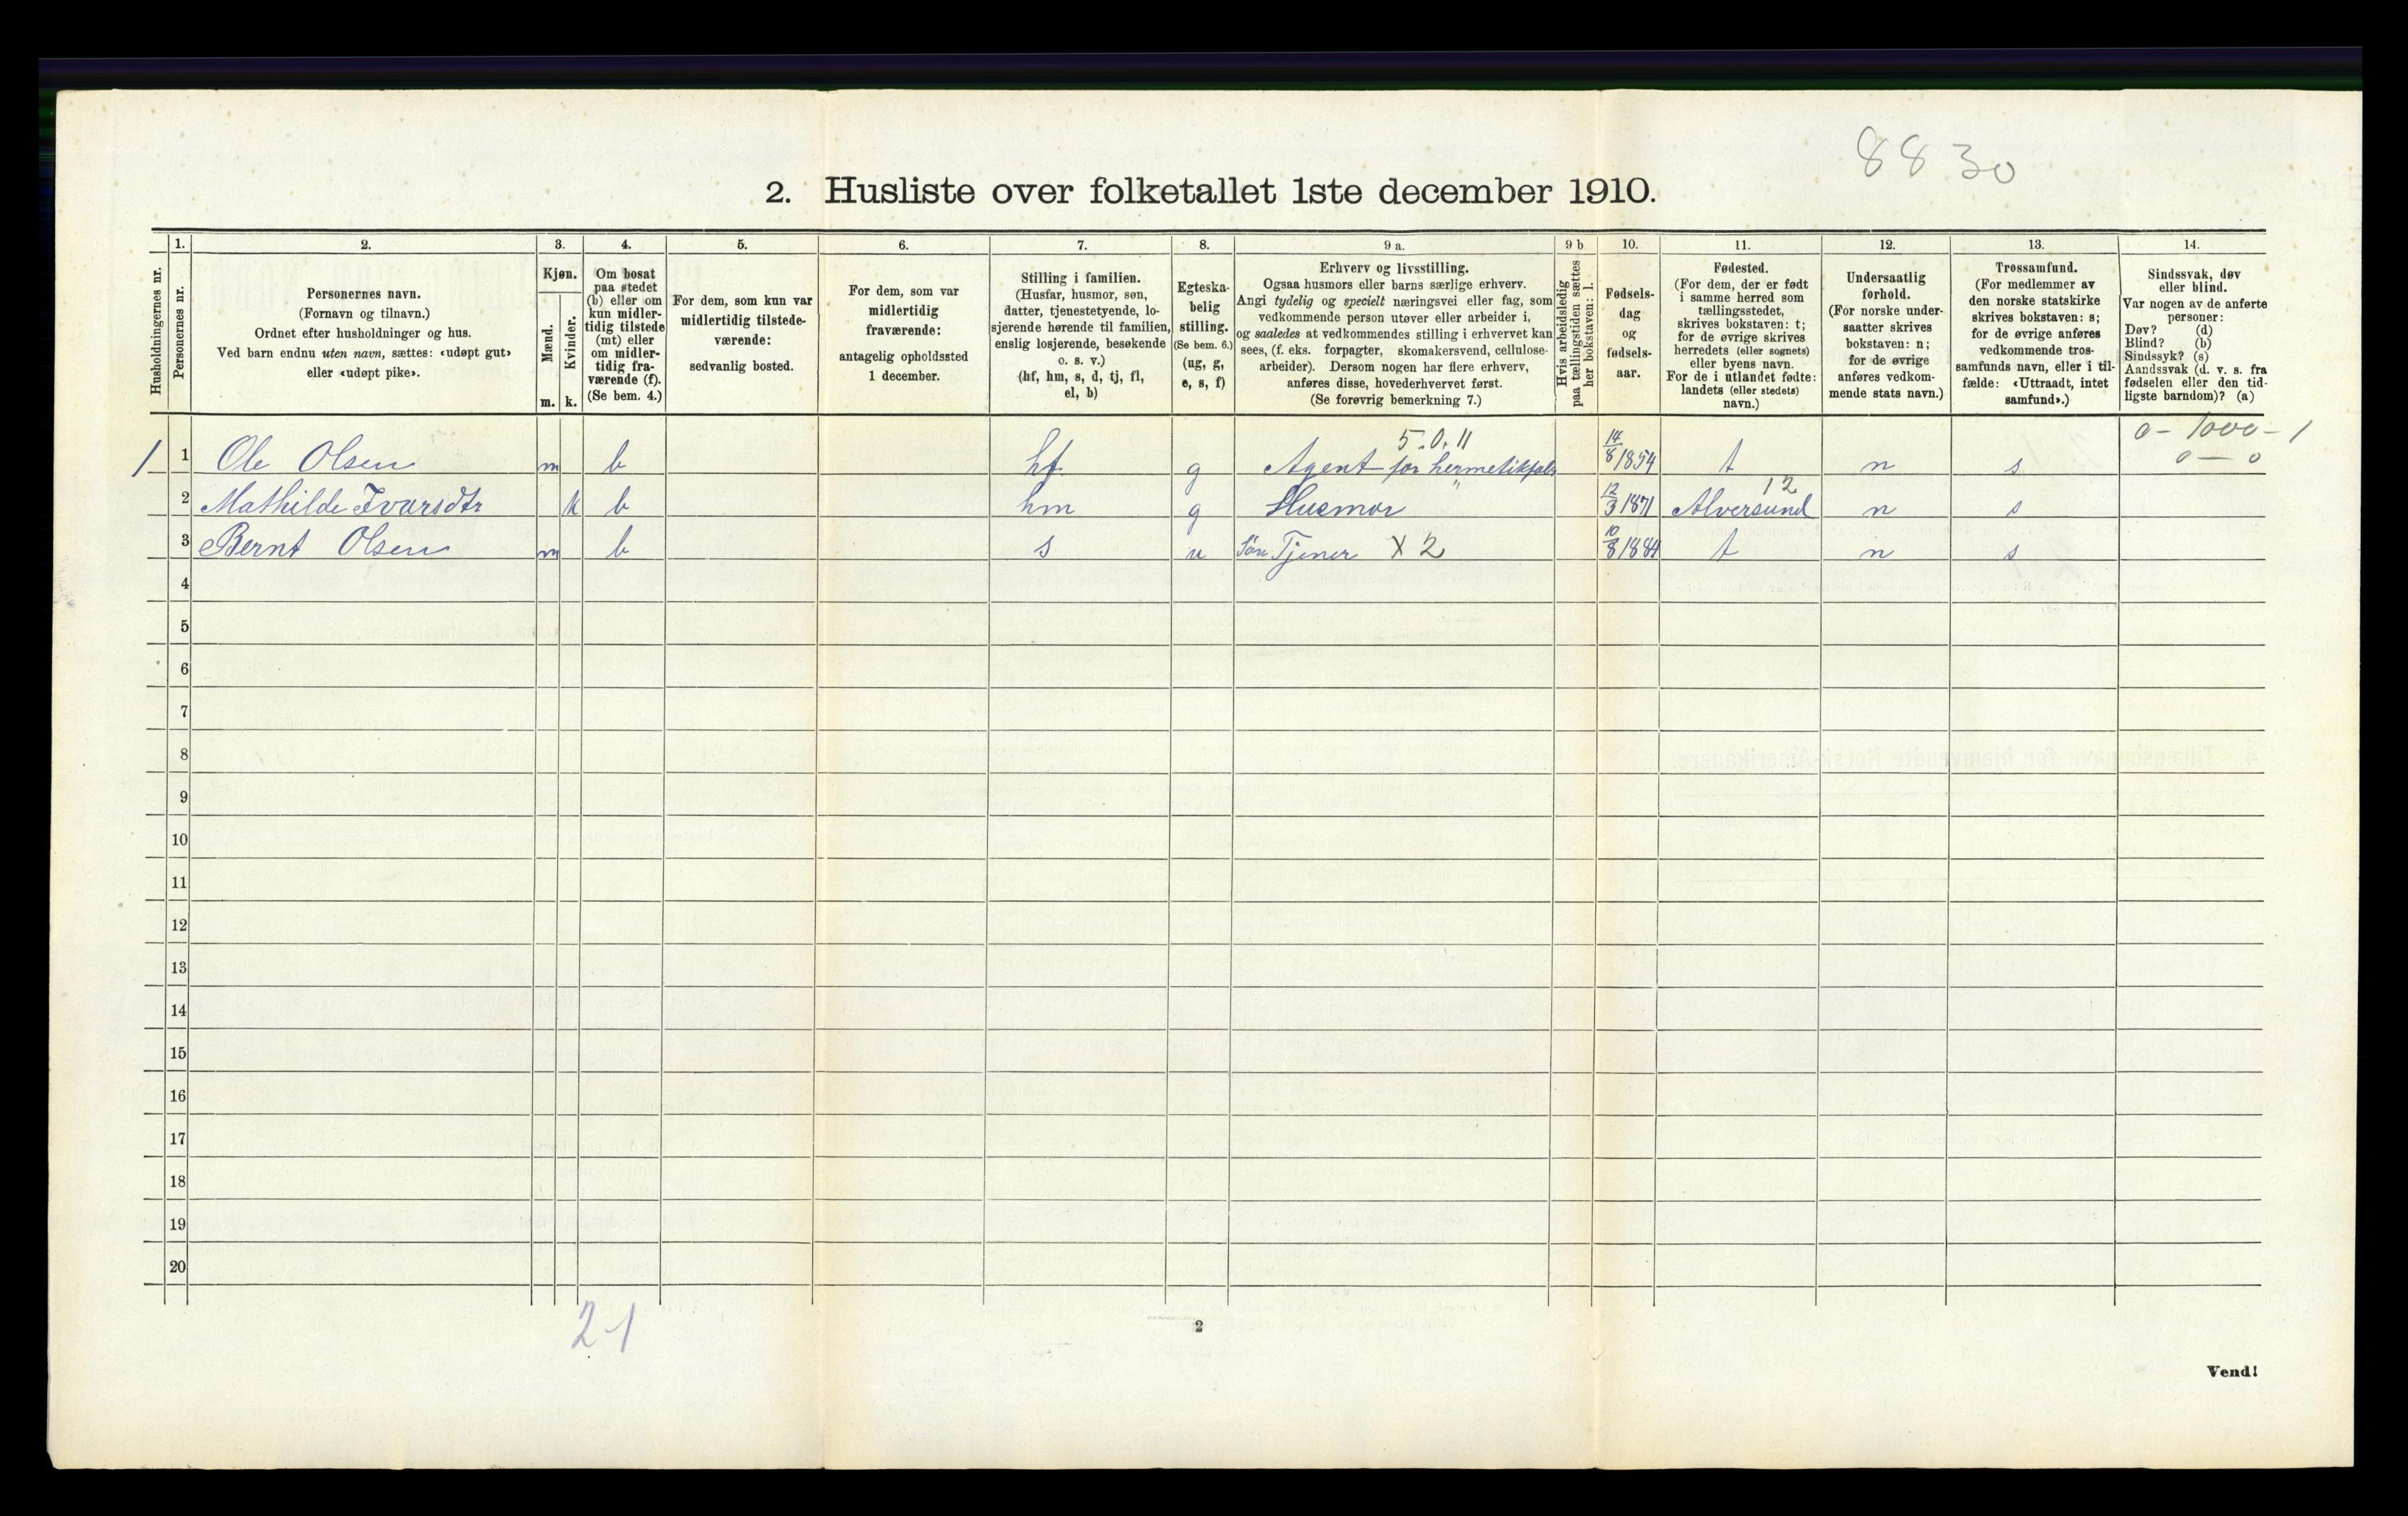 8830
2. Husliste over folketallet 1ste december 1910.
Husholdningernes nr.
1.
Personernes nr.
2.
Personernes navn.
(Fornavn og tilnavn.)
Ordnet efter husholdninger og hus.
Ved barn endnu uten navn, sættes: «udøpt gut»
eller «udøpt pike».
3.
Kjøn.
Mænd.
Kvinder.
m. k.
4.
Om bosat
paa stedet
(b) eller om
kun midler-
tidig tilstede
(mt) eller
om midler-
tidig fra-
værende (f).
(Se bem. 4.)
5.
For dem, som kun var
midlertidig tilstede-
værende:
sedvanlig bosted.
6.
For dem, som var
midlertidig
fraværende:
antagelig opholdssted
1 december.
7.
Stilling i familien.
(Husfar, husmor, søn,
datter, tjenestetyende, lo-
sjerende hørende til familien,
enslig losjerende, besøkende
o. s. v.)
(hf, hm, s, d, tj, fl,
el, b)
8.
Egteska-
belig
stilling.
(Se bem. 6.)
(ug, g,
e, s, f)
9 a.
Erhverv og livsstilling.
Ogsaa husmors eller barns særlige erhverv.
Angi tydelig og specielt næringsvei eller fag, som
vedkommende person utøver eller arbeider i,
og saaledes at vedkommendes stilling i erhvervet kan
sees, (f. eks. forpagter, skomakersvend, cellulose-
arbeider). Dersom nogen har flere erhverv,
anføres disse, hovederhvervet først.
(Se forøvrig bemerkning 7.)
9 b
Hvis arbeidsledig
paa tællingstiden sættes
her bokstaven: l.
10.
Fødsels-
dag
og
fødsels-
aar.
11.
Fødested.
(For dem, der er født
i samme herred som
tællingsstedet,
skrives bokstaven: t;
for de øvrige skrives
herredets (eller sognets)
eller byens navn.
For de i utlandet fødte:
landets (eller stedets)
navn.)
12.
Undersaatlig
forhold.
(For norske under-
saatter skrives
bokstaven: n;
for de øvrige
anføres vedkom-
mende stats navn.)
13.
Trossamfund.
(For medlemmer av
den norske statskirke
skrives bokstaven: s;
for de øvrige anføres
vedkommende tros-
samfunds navn, eller i til-
fælde: «Uttraadt, intet
samfund».)
14.
Sindssvak, døv
eller blind.
Var nogen av de anførte
personer:
Døv? (d)
Blind? (b)
Sindssyk? (s)
Aandssvak (d. v. s. fra
fødselen eller den tid-
ligste barndom)? (a)
5.0.11 0 - 1000 - 1
1 1 Ole Olsen m b hf g Agent for hermetikfabr 14/8 1854 t n s 0 — 0
" 12
2 Mathilde Ivarsdtr k b hm g Husmor 12/3 1871 Alversund n s
3 Bernt Olsen m b s u Søn Tjener X 2 10/8 1884 t n s
4
5
6
7
8
9
10
11
12
13
14
15
16
17
18
19
20
2-1
2
Vend!